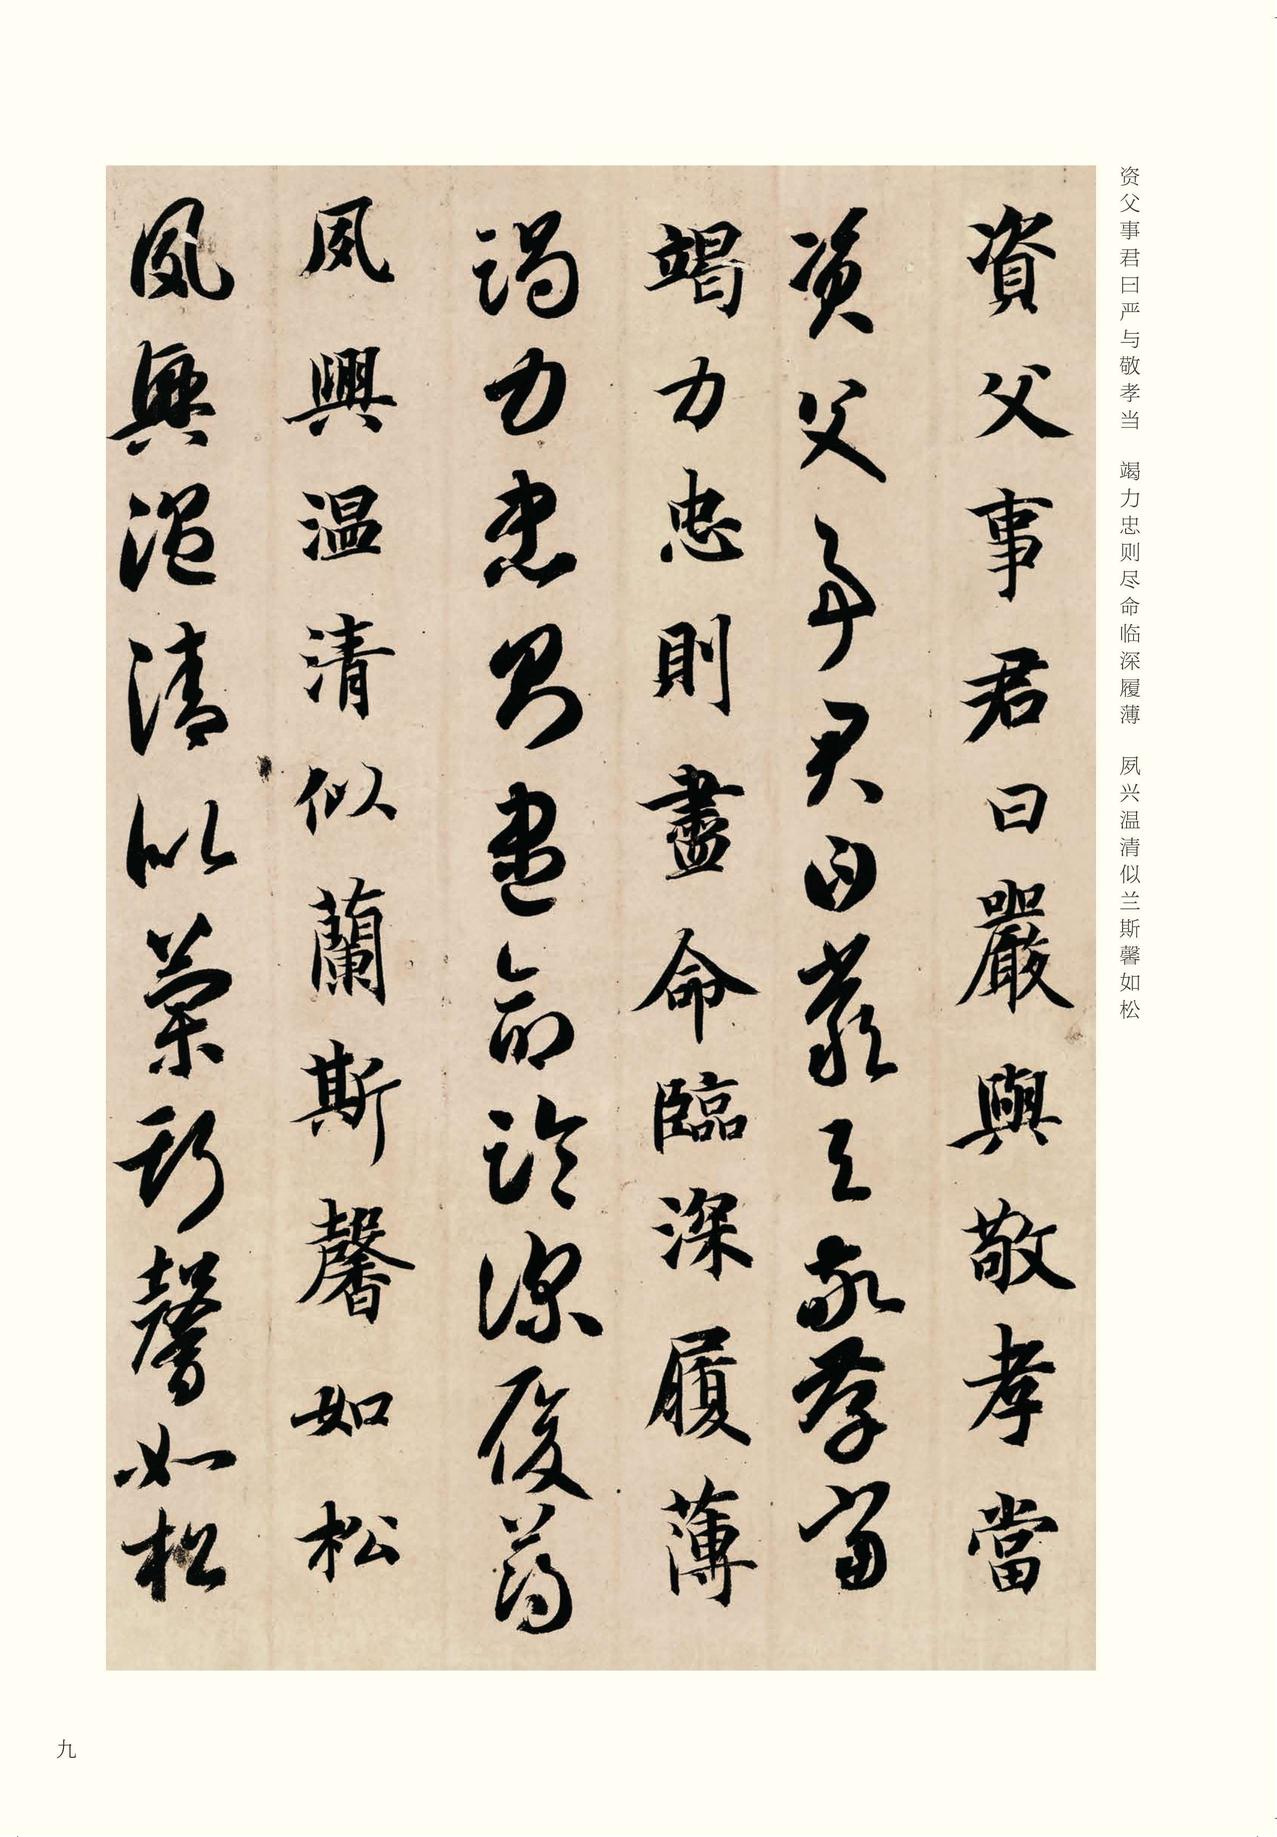 资父事君曰严与敬孝当　竭力忠则尽命临深履薄　夙兴温清似兰斯馨如松
資父事君曰嚴與敬孝當
資父事君曰嚴与敬孝當
竭力忠則盡命臨深履薄
竭力忠則盡命臨深履薄
夙興温清似蘭斯馨如松
夙興温清似蘭斯馨如松
九